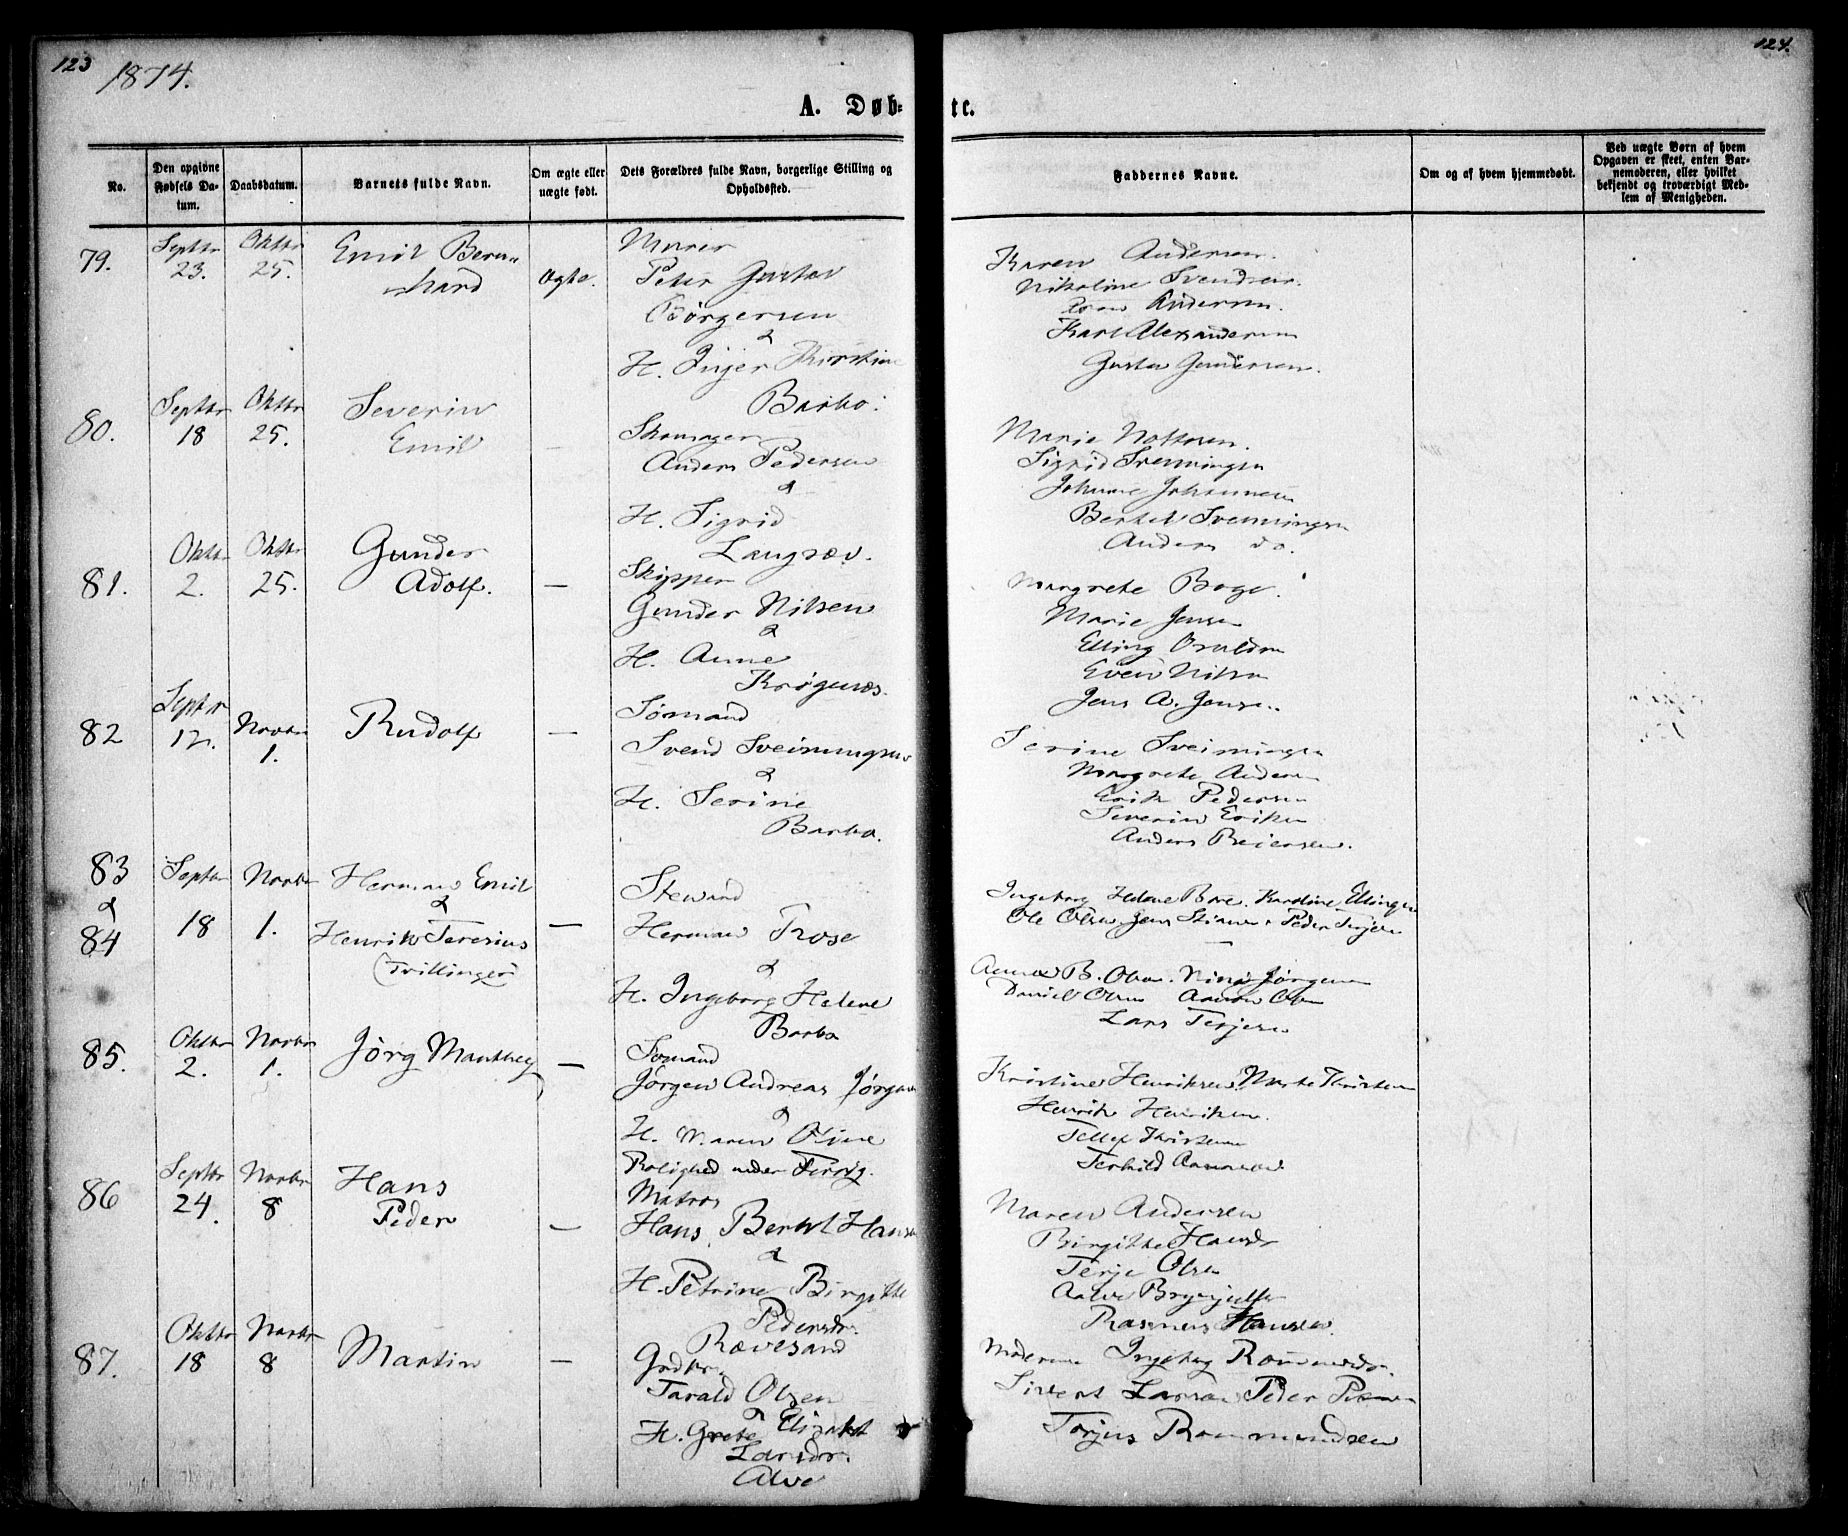 123
1874.
124.
A. Døb-
te.
No.
Den opgivne Fødsels Da-
tum.
Daabsdatum.
Barnets fulde Navn.
Om ægte eller
uægte født.
Dets Forældres fulde Navn, borgerlige Stilling og
Opholdssted.
Faddernes Navne.
Om og af hvem hjemmedøbt.
Ved uægte Børn af hvem
Opgaven er skeet, enten Bar-
nemoderen, eller hvilket
bekjendt og troværdigt Med-
lem af Menigheden.
79.
Septbr
23.
Oktbr
25.
Emil Bern-
hard
Ægte.
Murer
Peter Gustav
Börgersen
&
H. Inger Kirstine
Barbo.
Karen Andersen.
Nikoline Svendsen.
Andersen.
Karl Alexandersen
Gustav Gundersen.
80.
Septbr
18
Oktbr
25.
Severin
Emil
—
Skomager
Anders Pedersen
&
H. Sigrid
Langsæv.
Marie
Sigrid Svenningsen
Johanne Johannesen
Berthel Svenningsen
Anders do.
81.
Oktbr
2.
Oktbr
25.
Gunder
Adolf.
—
Skipper
Gunder Nilsen
&
H. Anne
Krøgenæs.
Margrethe Boge.
Marie Jensen
Elling Osuldsen
Even Nilsen
Jens A. Jensen.
82
Septbr
12.
Novbr
1.
Rudolf
—
Sømand
Svend Sveinungsen
&
H. Serine
Barbo.
Serine Sveinungsen
Margrete Andersen
Erik Pedersen
Severin Eriksen
Anders Reiersen.
83
&
84
Septbr
18
Novbr
1.
Herman Emil
&
Henrik Teresius
(Tvillinger)
—
Steward
Herman Rose
&
H. Ingeborg Helene
Barbo
Ingeborg Helene Boe. Karoline Ellingsen
Ole Olsen Jens & Peder Terjesen
—
B. Olsen. Nina Jørgensen
Daniel Olsen Aanon Olsen
Lars Terjesen
85.
Oktbr
2.
Novbr
1.
Jörg Manthey
—
Sømand
Jørgen Andreas Jørgensen
&
H. Maren Oline
Rolighed under
Kristine Henriksen.
Henrik Henriksen.
Tellef
Terkild
86
Septbr
24.
Novbr
8
Hans
Peder
—
Matros
Hans Berthel Hansen
&
H. Petrine Birgitte
Pedersdr.
Rævesand
Maren Andersen
Birgitte Hansdr
Terje Olsen
Rasmus Hansen.
87.
Oktbr
18
Novbr
8
Martin
—
Gdbr.
Tarald Olsen
&
H. Grete Elisabet
Larsdr.
Alve
Moderen Ingeborg
Sivert Larsen Peder
Torjus Rommundsen